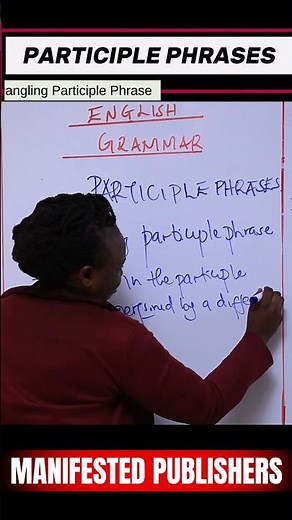 PARTICIPLE PHRASES
angling Participle Phrase
ENGLISH
GRAMMAR
PARTICIPLE PHRASES
participle phrase
in the participle
performed by a differe
MANIFESTED PUBLISHERS